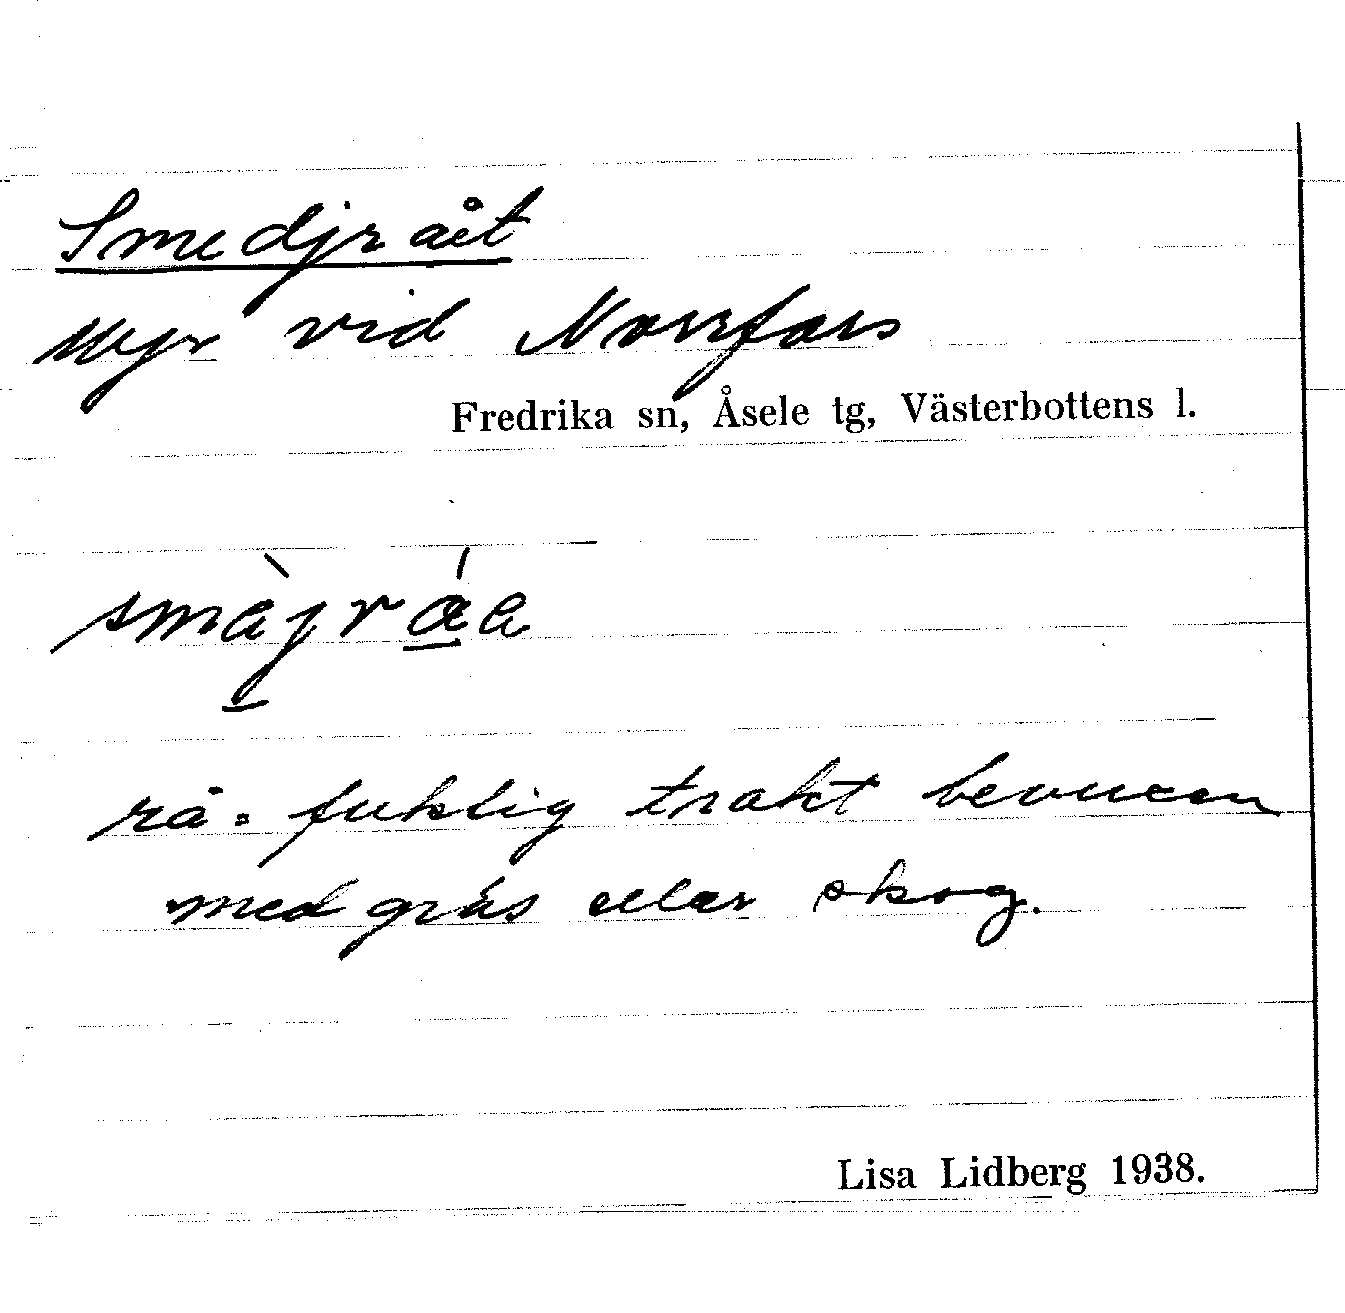 Smedjrået
Myr vid Norrfors
Fredrika sn, Åsele tg, Västerbottens l.
smèjráa
rå = fuktig trakt bevuxen
med gräs eller skog.
Lisa Lidberg 1938.